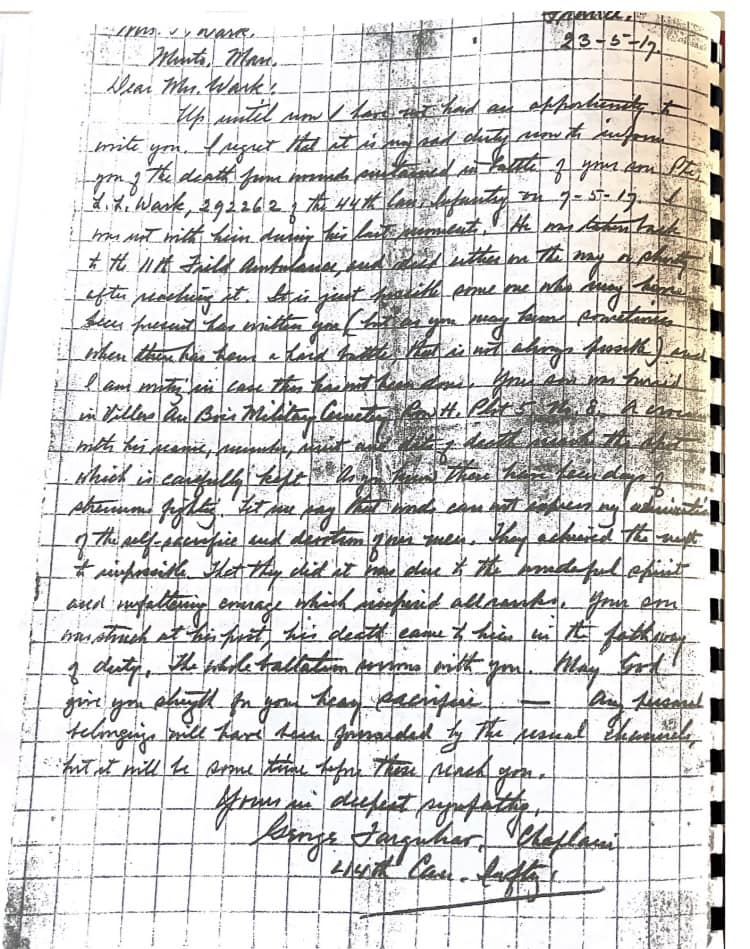 France.
23-5-17.
Mrs. J. Wark.
Minto, Man.
Dear Mrs. Wark:
Up until now I have not had an opportunity to
write you. I regret that it is my sad duty now to inform
you of the death from wounds sustained in battle of your son Pte.
L. L. Wark, 292262 of the 44th Can. Infantry on 7-5-17. I
was not with him during his last moments. He was taken back
to the 11th Field Ambulance, and died either on the way or shortly
after reaching it. It is just possible some one who may have
been present has written you (but as you may know sometimes
when there has been a hard battle, that is not always possible) and
I am writing in case this has not been done. Your son was buried
in Villers Au Bois Military Cemetery Row H. Plot 5. No. 8. A cross
with his name, number, unit and date of death marks the spot
which is carefully kept. As you know these have been days of
strenuous fighting. Let me say that words can not express my admiration
of the self-sacrifice and devotion of our men. They achieved the next
to impossible. That they did it was due to the wonderful spirit
and unfaltering courage which inspired all ranks. Your son
was struck at his post, his death came to him in the pathway
of duty. The whole battalion mourns with you. May God
give you strength for your heavy sacrifice — Any personal
belongings will have been forwarded by the usual channels,
but it will be some time before these reach you.
Yours in deepest sympathy,
George Farquhar, Chaplain
44th Can. Infty.